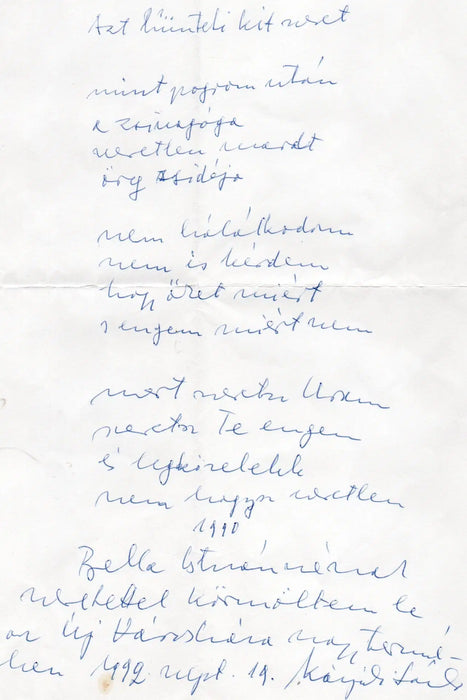 Azt bünteti kit szeret
mint pogrom után
a zsinagóga
veretlen maradt
öreg zsidója
nem hálálkodom
nem is kérdem
hogy őket miért
s engem miért nem
mert szeretsz Uram
szeretsz Te engem
és legközelebb
nem hagysz veretlen
1990
Bella Istvánnénak
szeretettel körmöltem le
az Új Városháza nagytermé-
ben 1992. szept. 19.